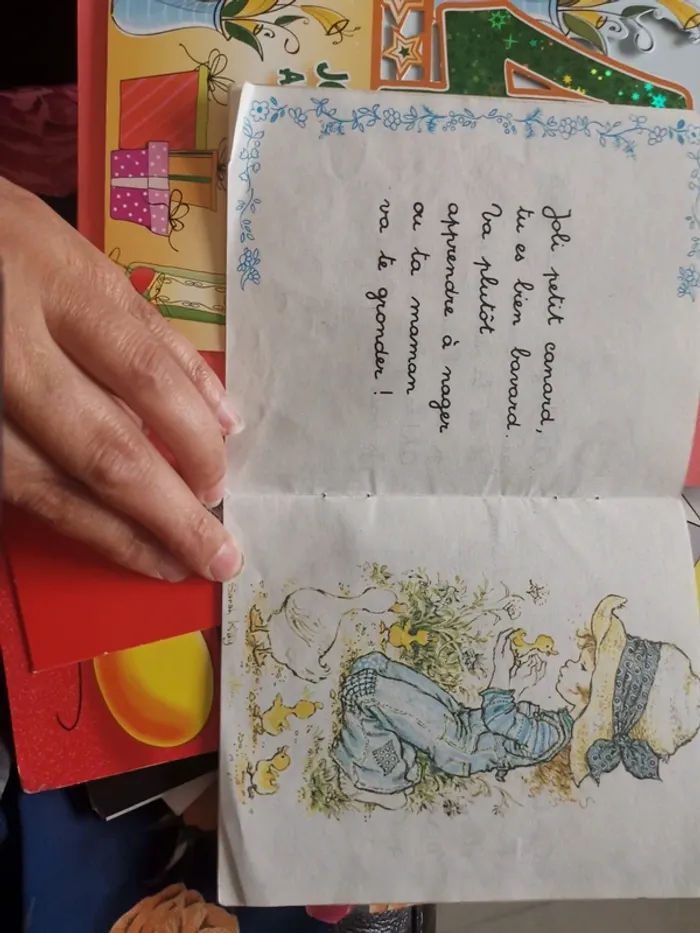 Joli petit canard,
tu es bien bavard.
Va plutôt
apprendre à nager
ou ta maman
va te gronder !
Sarah Kay